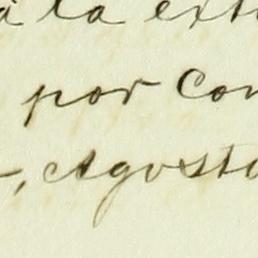 a la ext
por Con
, Agosto